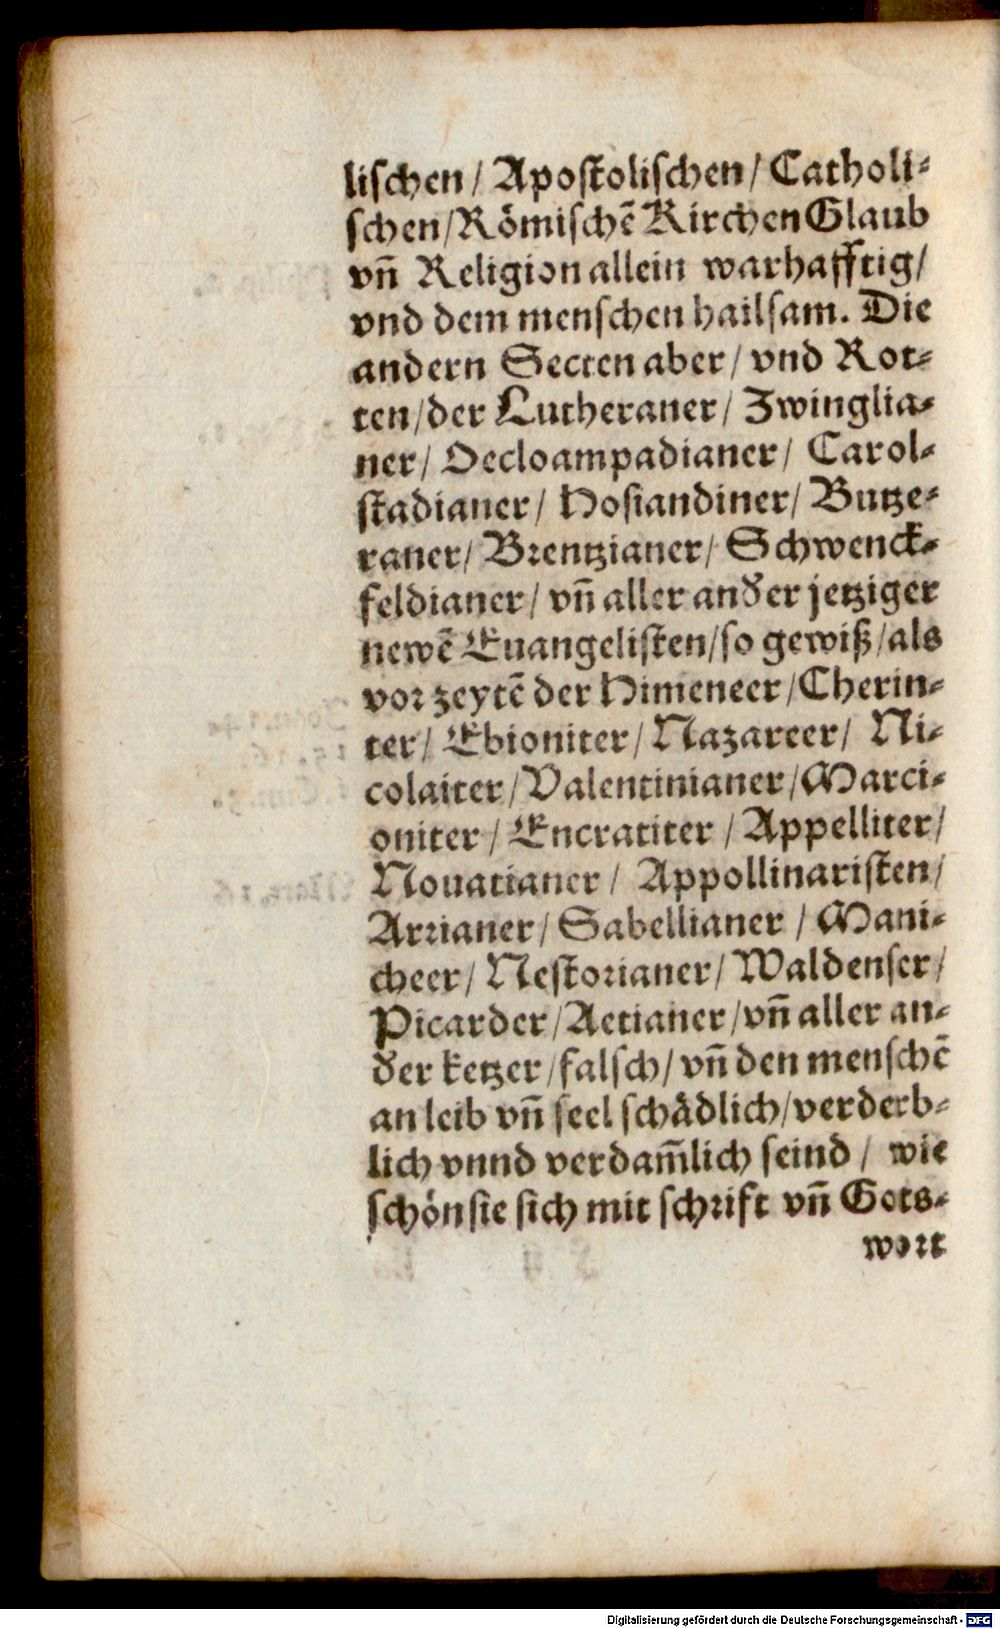 lischen / Apostolischen / Catholi⸗
schen / Römischē Kirchen Glaub
vn̄ Religion allein warhafftig /
vnd dem menschen hailsam. Die
andern Secten aber / vnd Rot⸗
ten / der Lutheraner / Zwinglia⸗
ner / Oecloampadianer / Carol⸗
stadianer / Hosiandiner / Butze⸗
raner / Brentzianer / Schwenck⸗
feldianer / vn̄ aller ander jetziger
newē Euangelisten / so gewiß / als
vor zeytē der Himeneer / Cherin⸗
ter / Ebioniter / Nazareer / Ni⸗
colaiter / Valentinianer / Marci⸗
oniter / Encratiter / Appelliter /
Nouatianer / Appollinaristen /
Arrianer / Sabellianer / Mani⸗
cheer / Nestorianer / Waldenser /
Picarder / Aetianer / vn̄ aller an⸗
der ketzer / falsch / vn̄ den menschē
an leib vn̄ seel schädlich / verderb⸗
lich vnnd verdam̄lich seind / wie
schön sie sich mit schrift vn̄ Gots⸗
wort
Digitalisierung gefördert durch die Deutsche Forschungsgemeinschaft - DFG